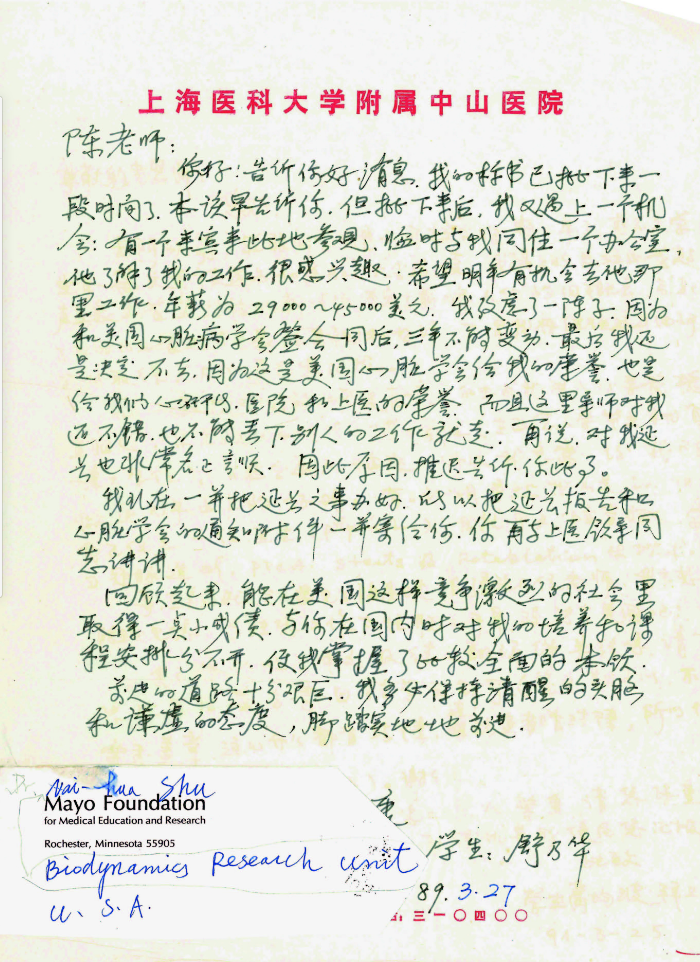 上海医科大学附属中山医院
陈老师:
你好!告诉你好消息,我的标书已批下来一
段时间了,本该早告诉你,但批下来后,我又遇上一个机
会:有一个来宾来此地参观、临时与我同住一个办公室,
他了解了我的工作,很感兴趣.希望明年有机会去他那
里工作.年薪为 29000~45000美元.我考虑了一阵子.因为
和美国心脏病学会签合同后,三年不能变动.最后我还
是决定不去.因为这是美国心脏学会给我的荣誉.也是
给我们心研所,医院和上医的荣誉.而且这里导师对我
还不错.也不能丢下别人的工作就走.再说,对我延
长也非常名正言顺.因此原因,推迟告诉你此事。
我现在一并把延长之事办好.所以把延长报告和
心脏学会的通知附件一并寄给你.你再与上医领导同
志讲讲.
回顾起来,能在美国这样竞争激烈的社会里
取得一点小成绩,与你在国内时对我的培养和课
程安排分不开,使我掌握了比较全面的本领.
前进的道路十分艰巨.我多少保持清醒的头脑
和谦虚的态度,脚踏实地地前进.
Dr. Nai-hua Shu
Mayo Foundation
for Medical Education and Research
Rochester, Minnesota 55905
Biodynamics Research Unit
U. S. A.
学生:舒乃华
89.3.27
三一〇四〇〇